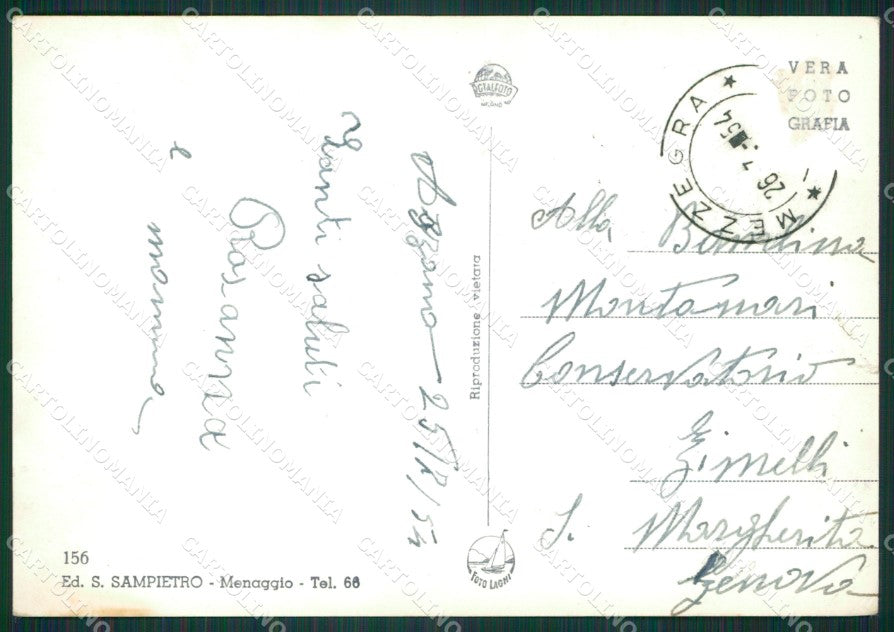 Azzano - 25/8/54
Tanti saluti
Rosanna
e
mamma
156
Ed. S. SAMPIETRO - Menaggio - Tel. 66
Riproduzione vietata
FOTO LAGHI
VERA
FOTO
GRAFIA
MEZZEGRA
26 54
Alla Bambina
Montanari
Conservatorio
Gimelli
S. Margherita
Genova
CARTOLINOMANIA